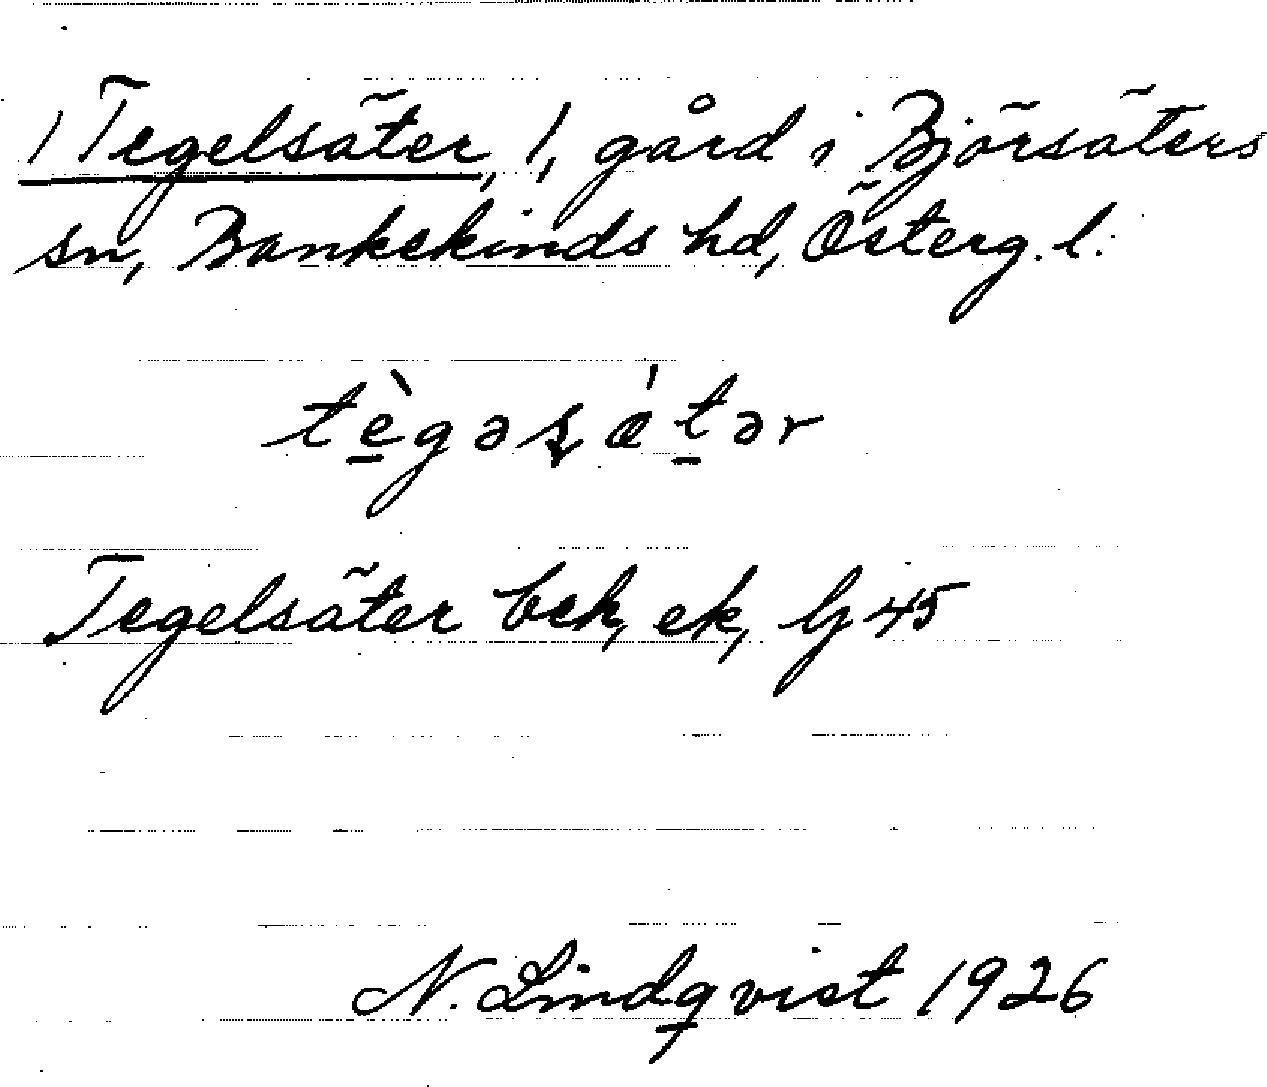 1 Tegelsäter, 1, gård i Björsäters
sn, Bankekinds hd, Österg. l.
tègəsætər
Tegelsäter bek, ek, Gj 45
N. Lindqvist 1926